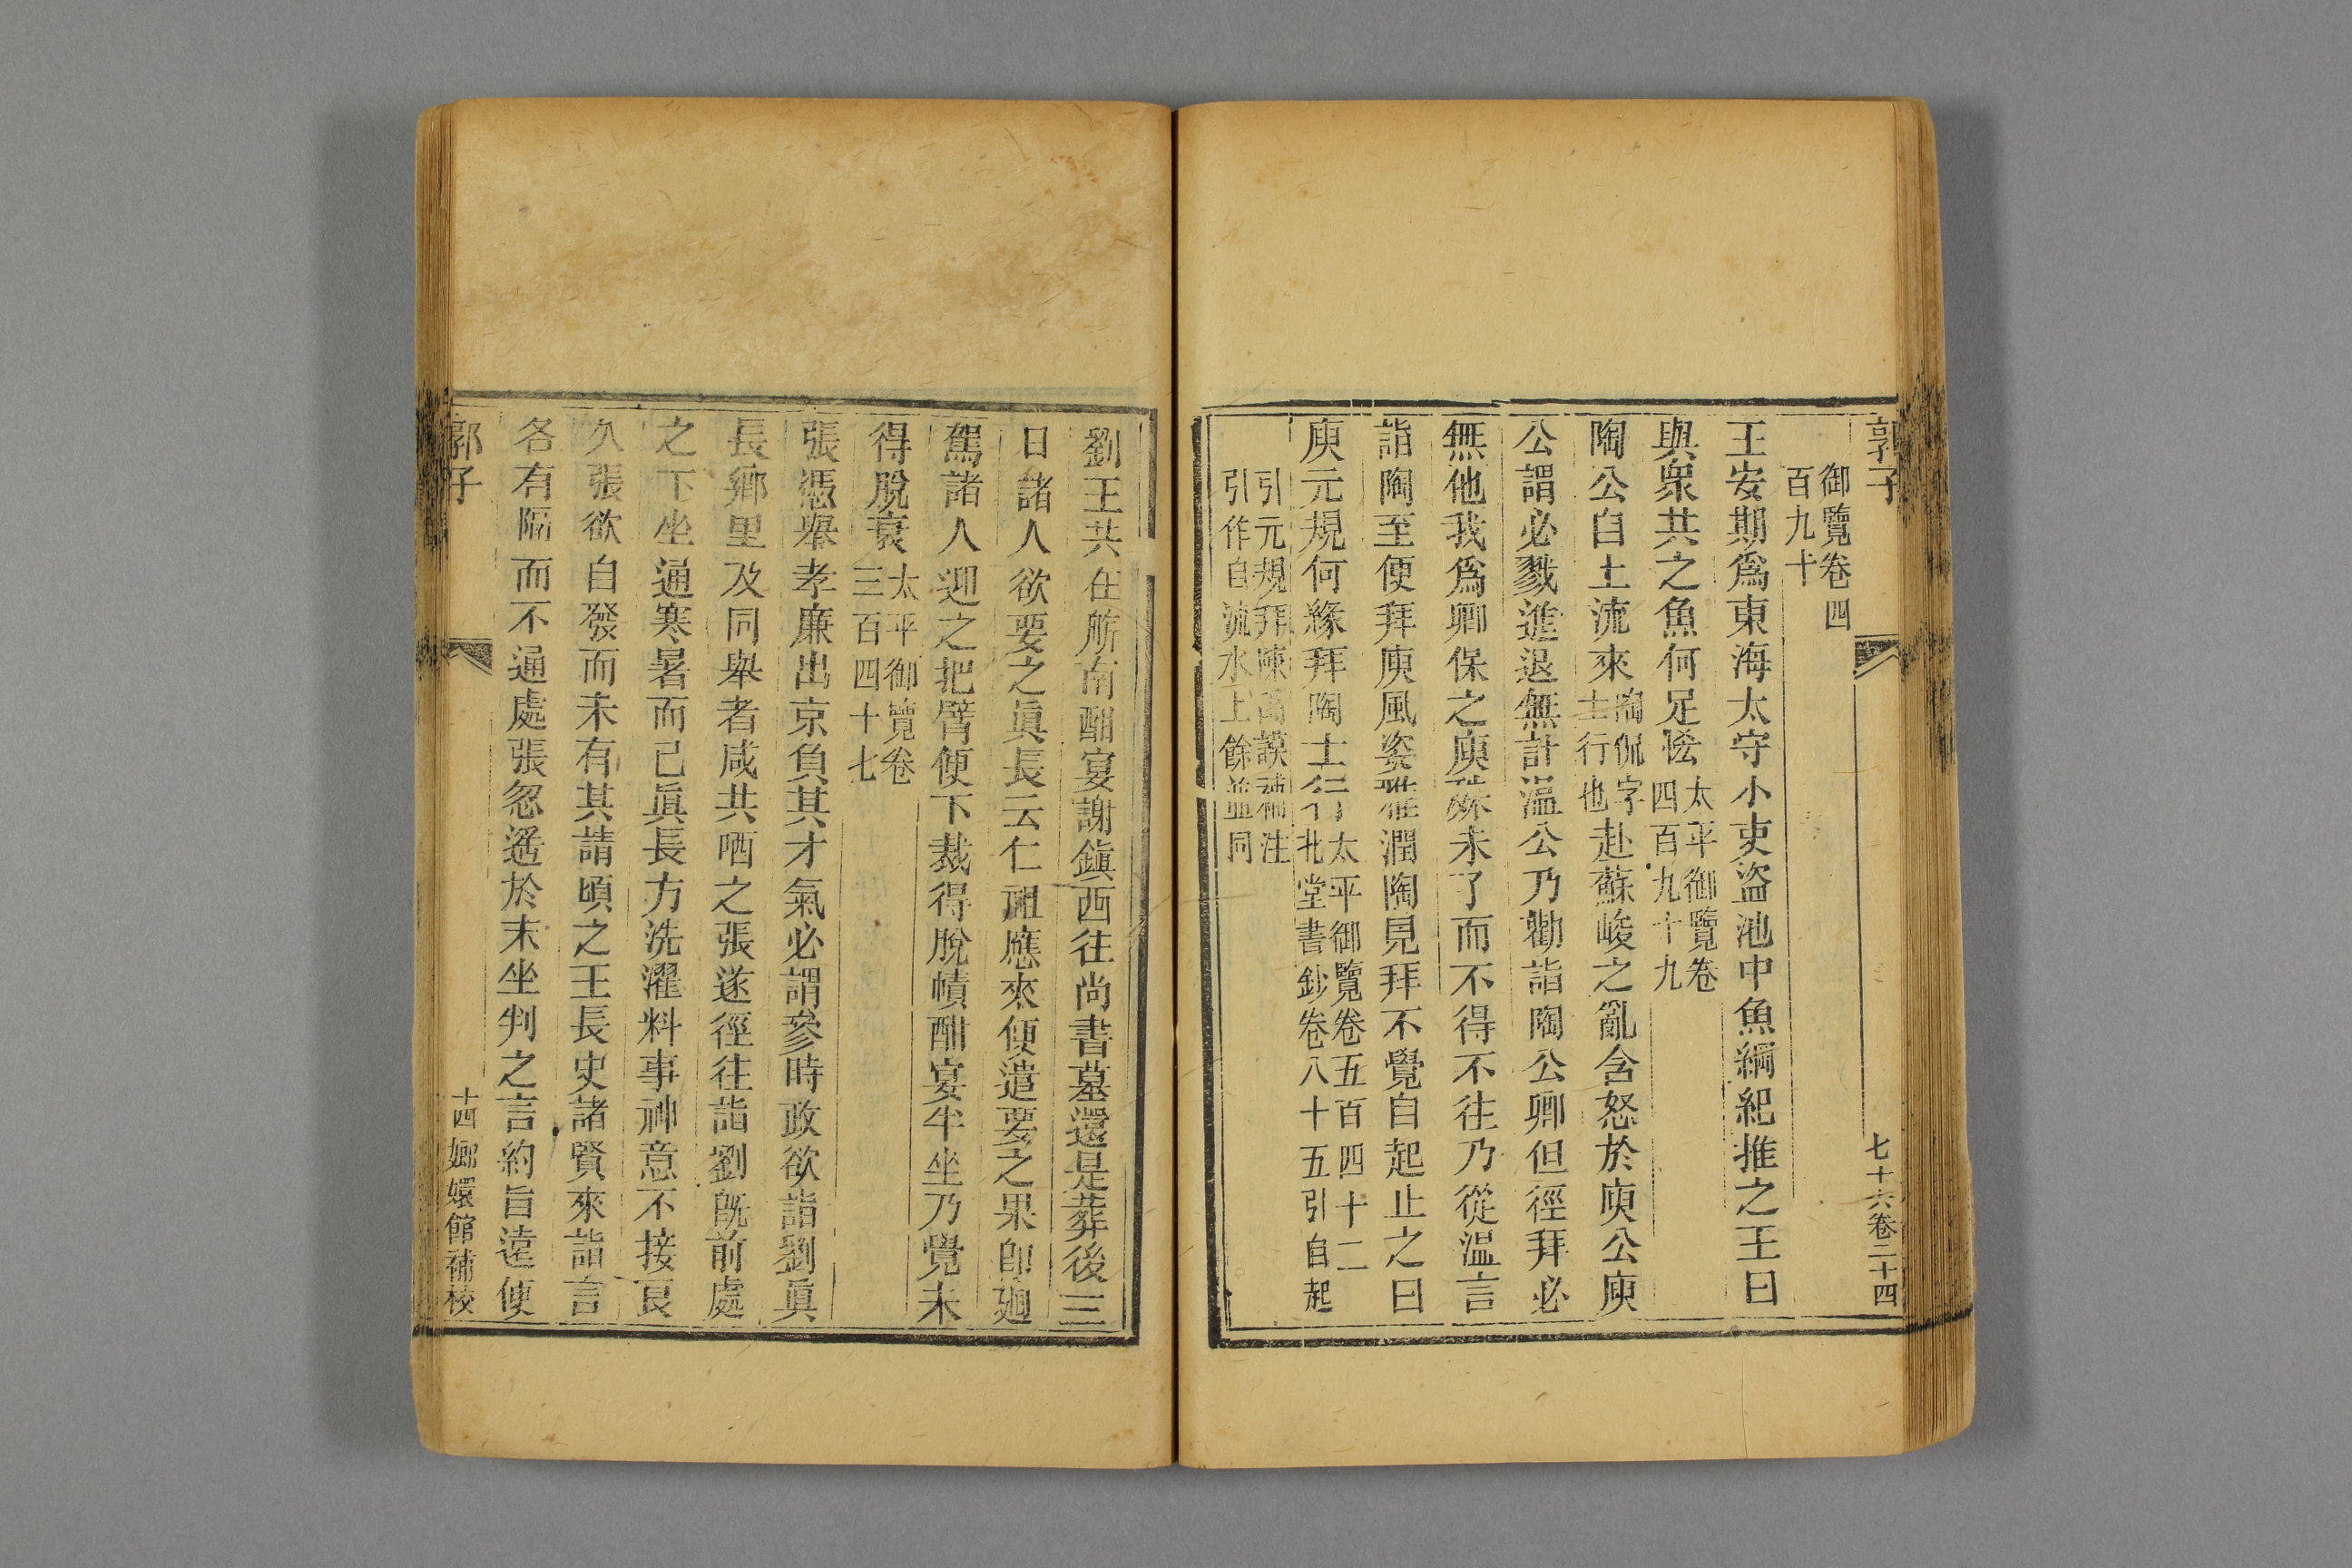 郭子
七十六卷二十四
御覽卷四
百九十
王安期爲東海太守小吏盜池中魚綱紀推之王曰
與衆共之魚何足恡太平御覽卷
四百九十九
陶公自土流來陶侃字
士行也赴蘇峻之亂含怒於庾公庾
公謂必戮進退無計溫公乃勸詣陶公卿但徑拜必
無他我爲卿保之庾殊未了而不得不往乃從溫言
詣陶至便拜庾風姿雅潤陶見拜不覺自起止之曰
庾元規何緣拜陶士行太平御覽卷五百四十二
北堂書鈔卷八十五引自起
引元規拜陳禹謨補注
引作自流水上餘並同
劉王共在斾南酣宴謝鎭西往尚書墓還是葬後三
日諸人欲要之眞長云仁祖應來便遣要之果卽廻
駕諸人迎之把臂便下裁得脫幘酣宴半坐乃覺未
得脫衰太平御覽卷
三百四十七
張憑舉孝廉出京負其才氣必謂參時政欲詣劉眞
長鄉里及同舉者咸共哂之張遂徑往詣劉旣前處
之下坐通寒暑而已眞長方洗濯料事神意不接良
久張欲自發而未有其請頃之王長史諸賢來詣言
各有隔而不通處張忽遥於末坐判之言約旨遠便
郭子
十四嫏嬛館補校